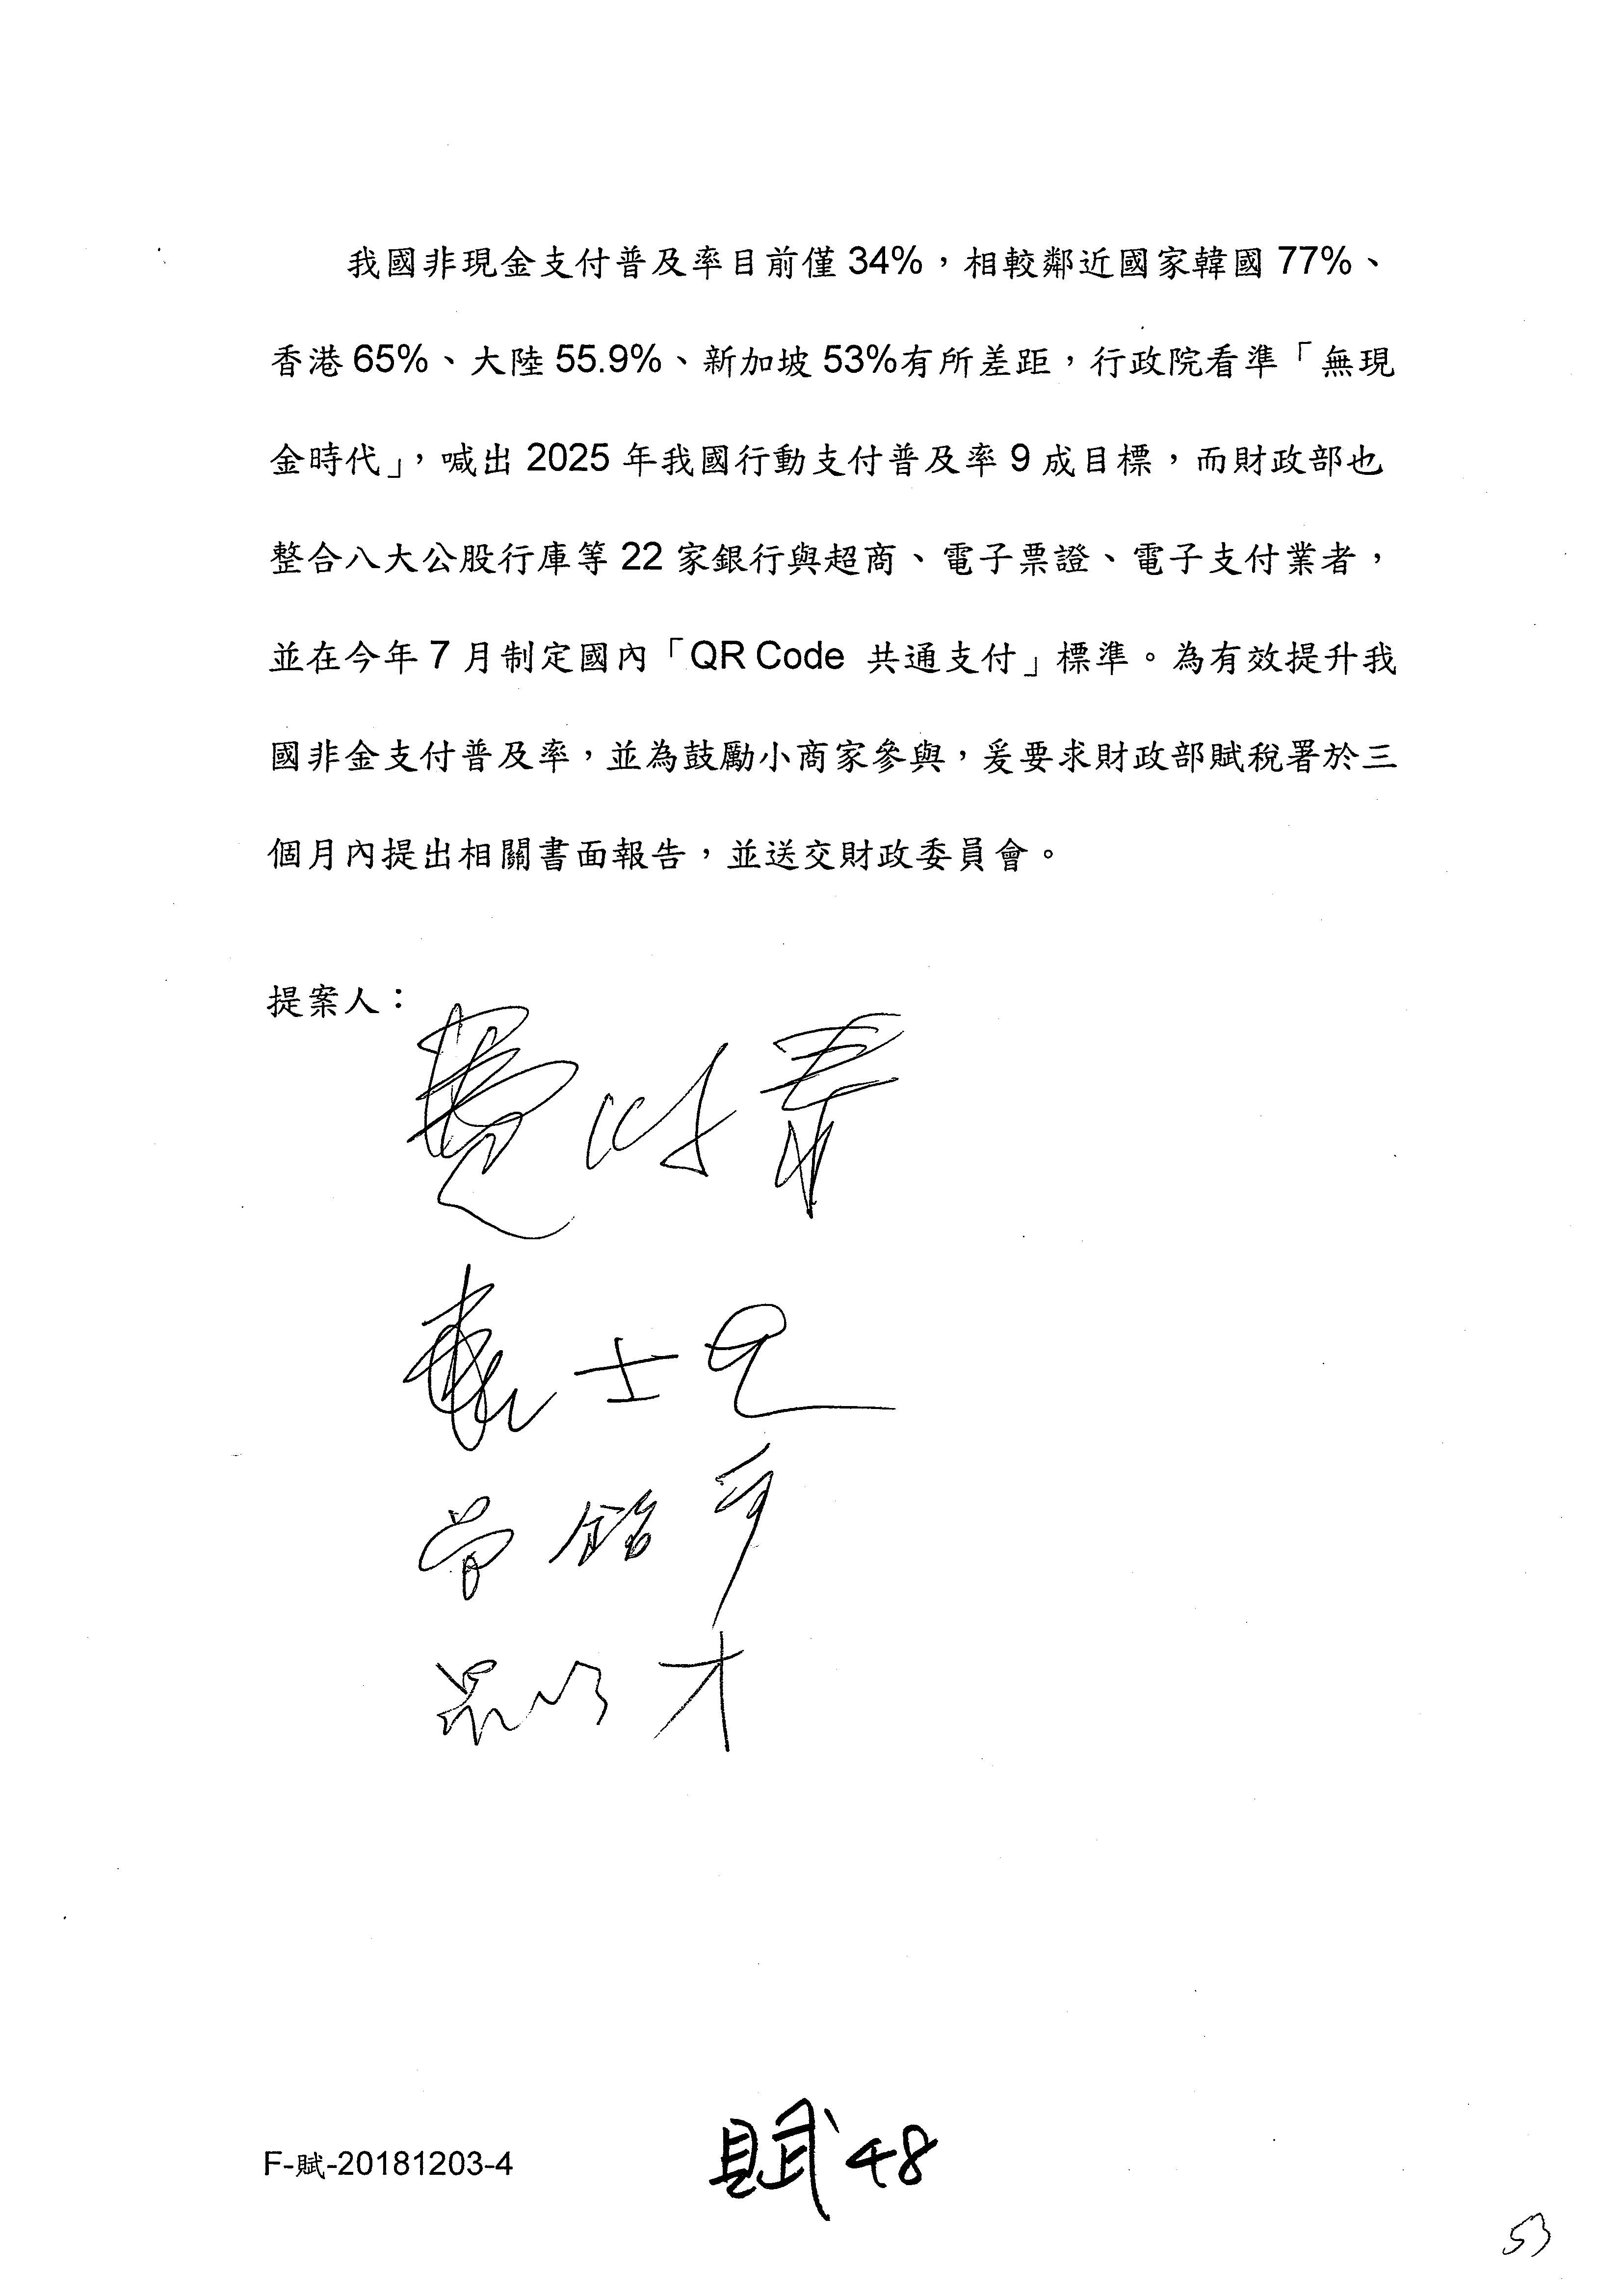 我國非現金支付普及率目前僅34%，相較鄰近國家韓國77%、
香港65%、大陸55.9%、新加坡53%有所差距，行政院看準「無現
金時代」，喊出2025年我國行動支付普及率9成目標，而財政部也
整合八大公股行庫等22家銀行與超商、電子票證、電子支付業者，
並在今年7月制定國內「QR Code 共通支付」標準。為有效提升我
國非金支付普及率，並為鼓勵小商家參與，爰要求財政部賦稅署於三
個月內提出相關書面報告，並送交財政委員會。
提案人：
費鴻泰
曾銘宗
F-賦-20181203-4
賦48
53